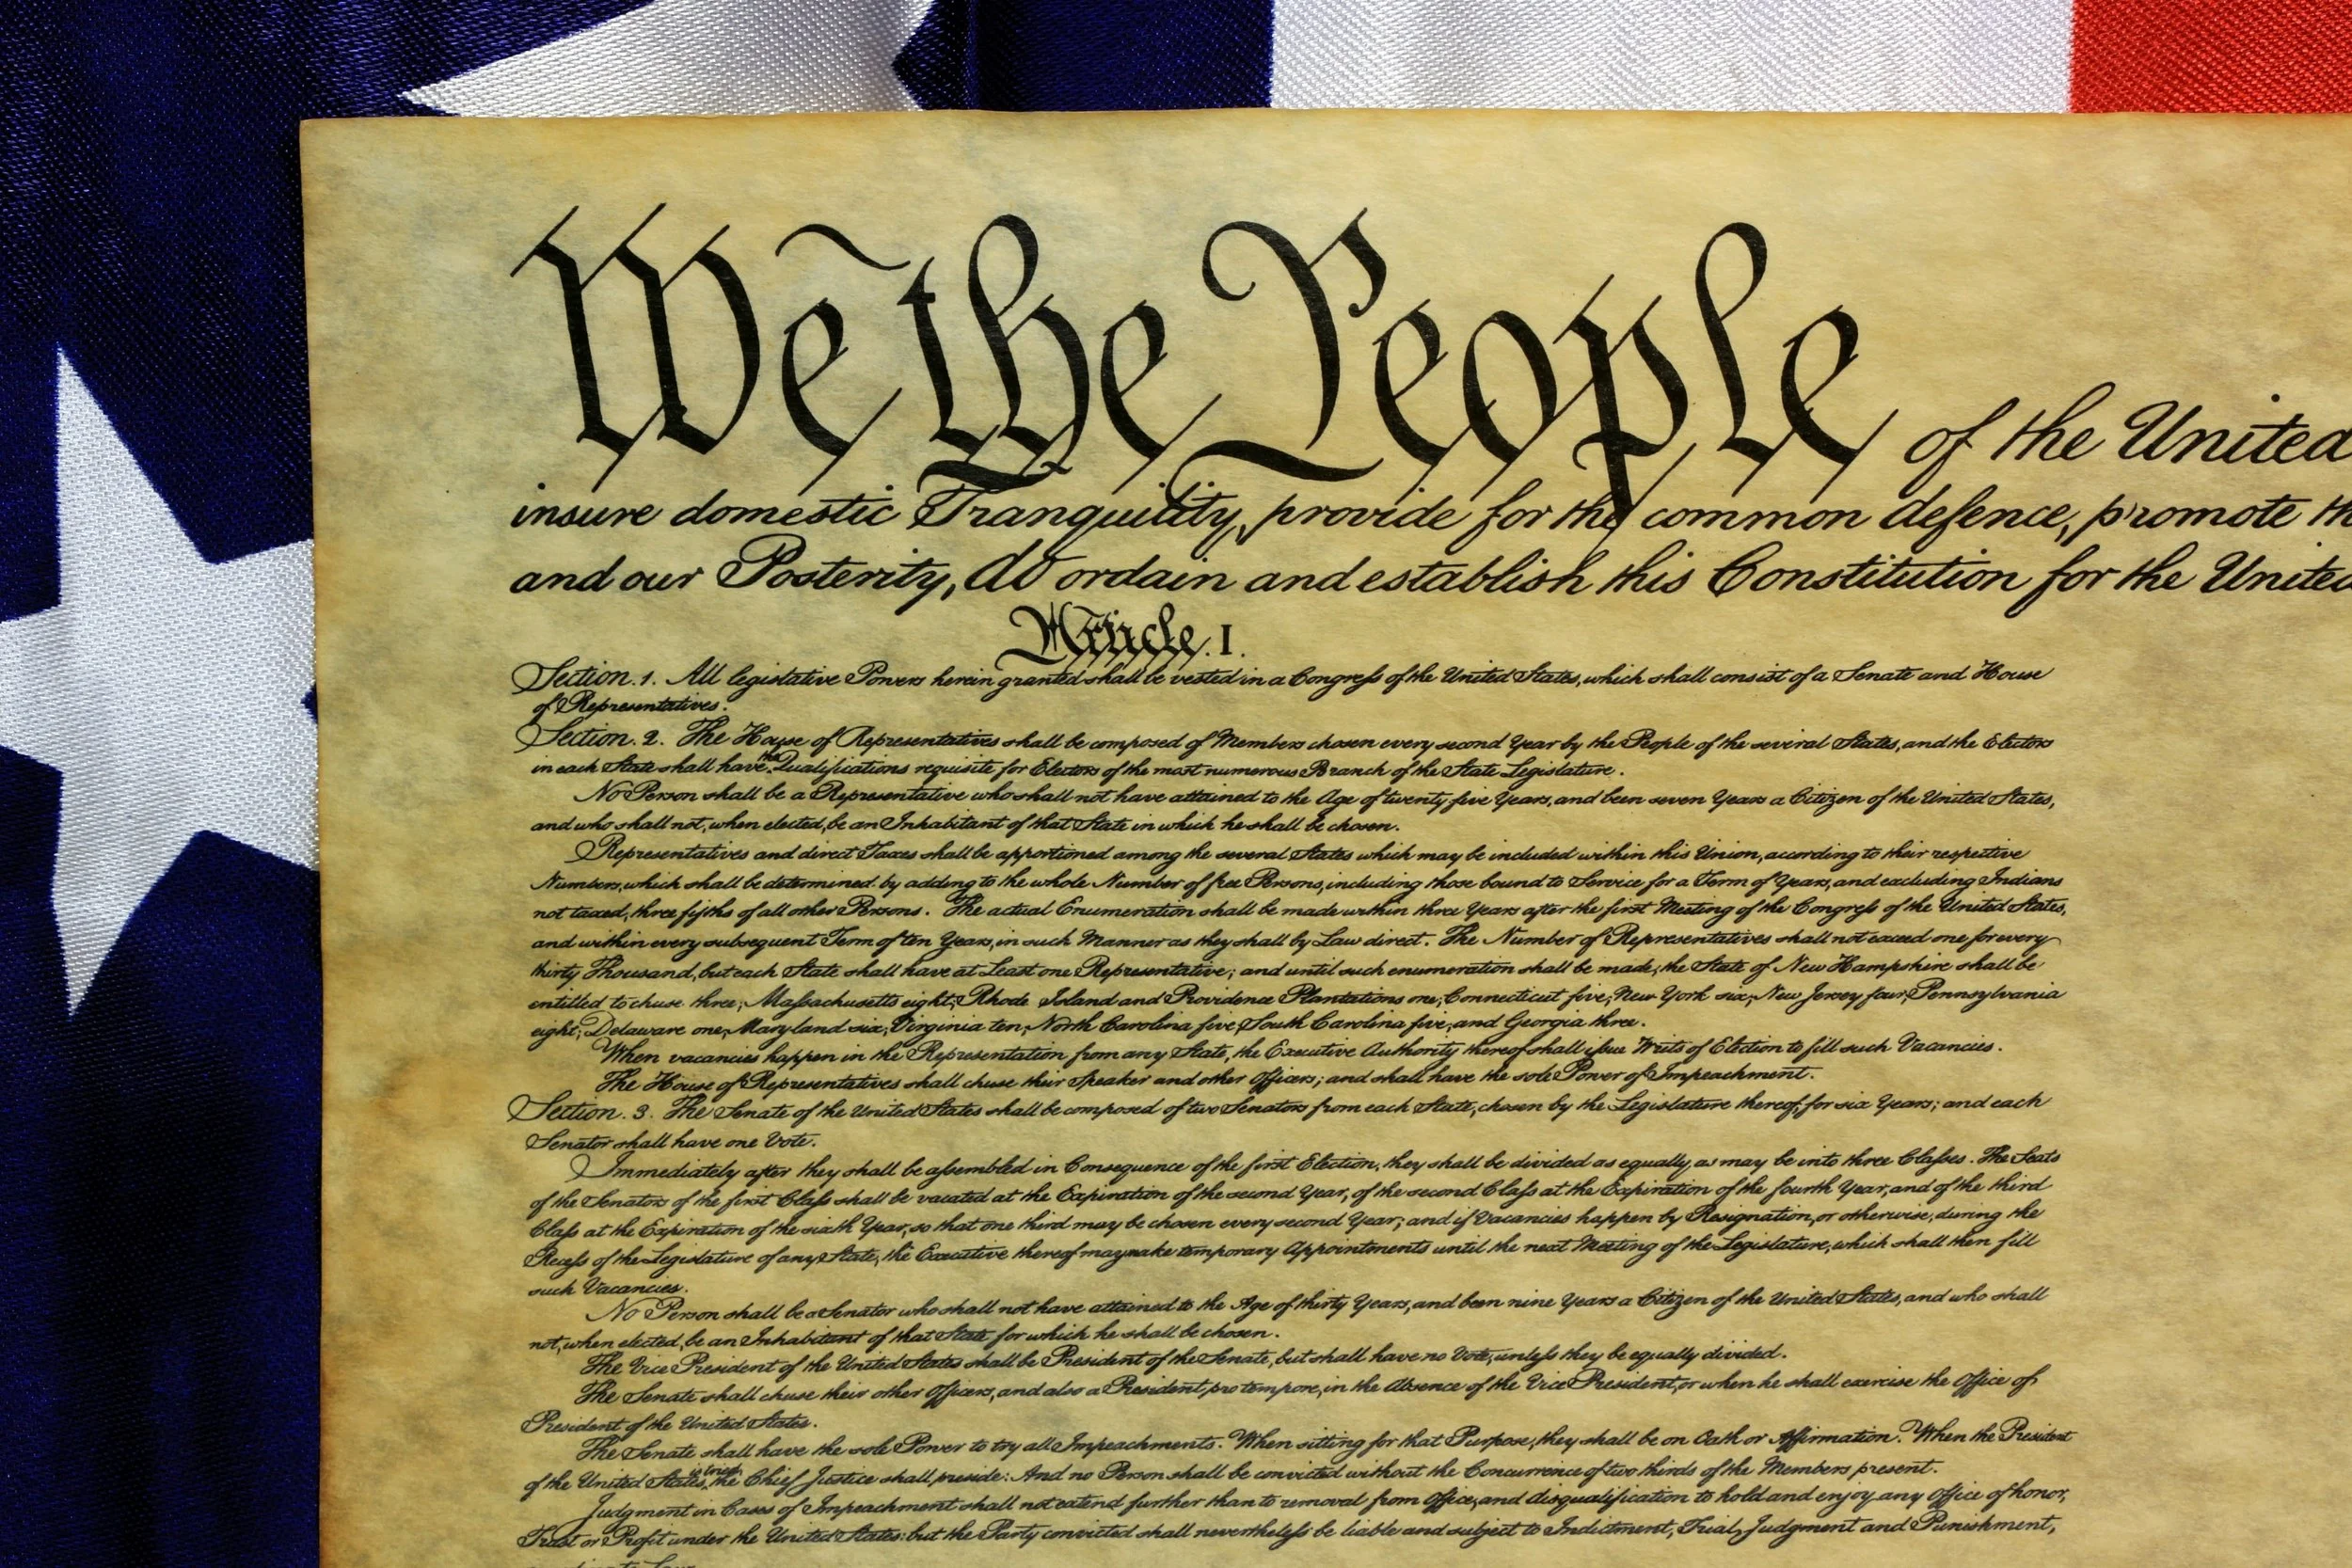 We the People of the United
insure domestic Tranquility, provide for the common defence, promote th
and our Posterity, do ordain and establish this Constitution for the United
Article. I.
Section. 1. All legislative Powers herein granted shall be vested in a Congress of the United States, which shall consist of a Senate and House
of Representatives.
Section. 2. The House of Representatives shall be composed of Members chosen every second Year by the People of the several States, and the Electors
in each State shall have the Qualifications requisite for Electors of the most numerous Branch of the State Legislature.
No Person shall be a Representative who shall not have attained to the Age of twenty five Years, and been seven Years a Citizen of the United States,
and who shall not, when elected, be an Inhabitant of that State in which he shall be chosen.
Representatives and direct Taxes shall be apportioned among the several States which may be included within this Union, according to their respective
Numbers, which shall be determined by adding to the whole Number of free Persons, including those bound to Service for a Term of Years, and excluding Indians
not taxed, three fifths of all other Persons. The actual Enumeration shall be made within three Years after the first Meeting of the Congress of the United States,
and within every subsequent Term of ten Years, in such Manner as they shall by Law direct. The Number of Representatives shall not exceed one for every
thirty Thousand, but each State shall have at Least one Representative; and until such enumeration shall be made, the State of New Hampshire shall be
entitled to chuse three, Massachusetts eight, Rhode Island and Providence Plantations one, Connecticut five, New York six, New Jersey four, Pennsylvania
eight, Delaware one, Maryland six, Virginia ten, North Carolina five, South Carolina five, and Georgia three.
When vacancies happen in the Representation from any State, the Executive Authority thereof shall issue Writs of Election to fill such Vacancies.
The House of Representatives shall chuse their Speaker and other Officers; and shall have the sole Power of Impeachment.
Section. 3. The Senate of the United States shall be composed of two Senators from each State, chosen by the Legislature thereof, for six Years; and each
Senator shall have one Vote.
Immediately after they shall be assembled in Consequence of the first Election, they shall be divided as equally as may be into three Classes. The Seats
of the Senators of the first Class shall be vacated at the Expiration of the second Year, of the second Class at the Expiration of the fourth Year, and of the third
Class at the Expiration of the sixth Year, so that one third may be chosen every second Year; and if Vacancies happen by Resignation, or otherwise, during the
Recess of the Legislature of any State, the Executive thereof may make temporary Appointments until the next Meeting of the Legislature, which shall then fill
such Vacancies.
No Person shall be a Senator who shall not have attained to the Age of thirty Years, and been nine Years a Citizen of the United States, and who shall
not, when elected, be an Inhabitant of that State for which he shall be chosen.
The Vice President of the United States shall be President of the Senate, but shall have no Vote, unless they be equally divided.
The Senate shall chuse their other Officers, and also a President pro tempore, in the Absence of the Vice President, or when he shall exercise the Office of
President of the United States.
The Senate shall have the sole Power to try all Impeachments. When sitting for that Purpose, they shall be on Oath or Affirmation. When the President
of the United States is tried, the Chief Justice shall preside: And no Person shall be convicted without the Concurrence of two thirds of the Members present.
Judgment in Cases of Impeachment shall not extend further than to removal from Office, and disqualification to hold and enjoy any Office of honor,
Trust or Profit under the United States: but the Party convicted shall nevertheless be liable and subject to Indictment, Trial, Judgment and Punishment,